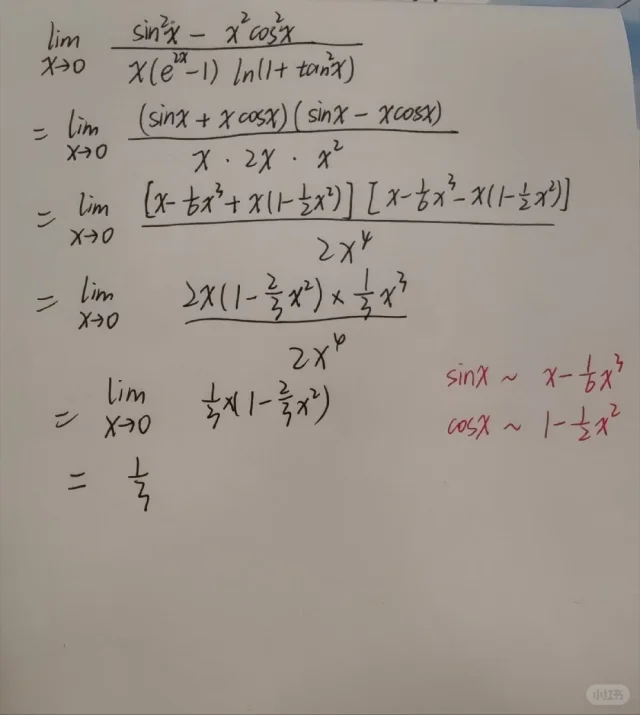 lim x→0 (sin²x − x²cos²x) / (x(e^{2x}−1) ln(1+tan²x))
= lim x→0 (sinx + xcosx)(sinx − xcosx) / (x · 2x · x²)
= lim x→0 [x−1/6x³+x(1−1/2x²)] [x−1/6x³−x(1−1/2x²)] / 2x⁴
= lim x→0 2x(1−2/3x²) × 1/3x³ / 2x⁴
sinx ~ x−1/6x³
= lim x→0 1/3x(1−2/3x²)
cosx ~ 1−1/2x²
= 1/3
小红书